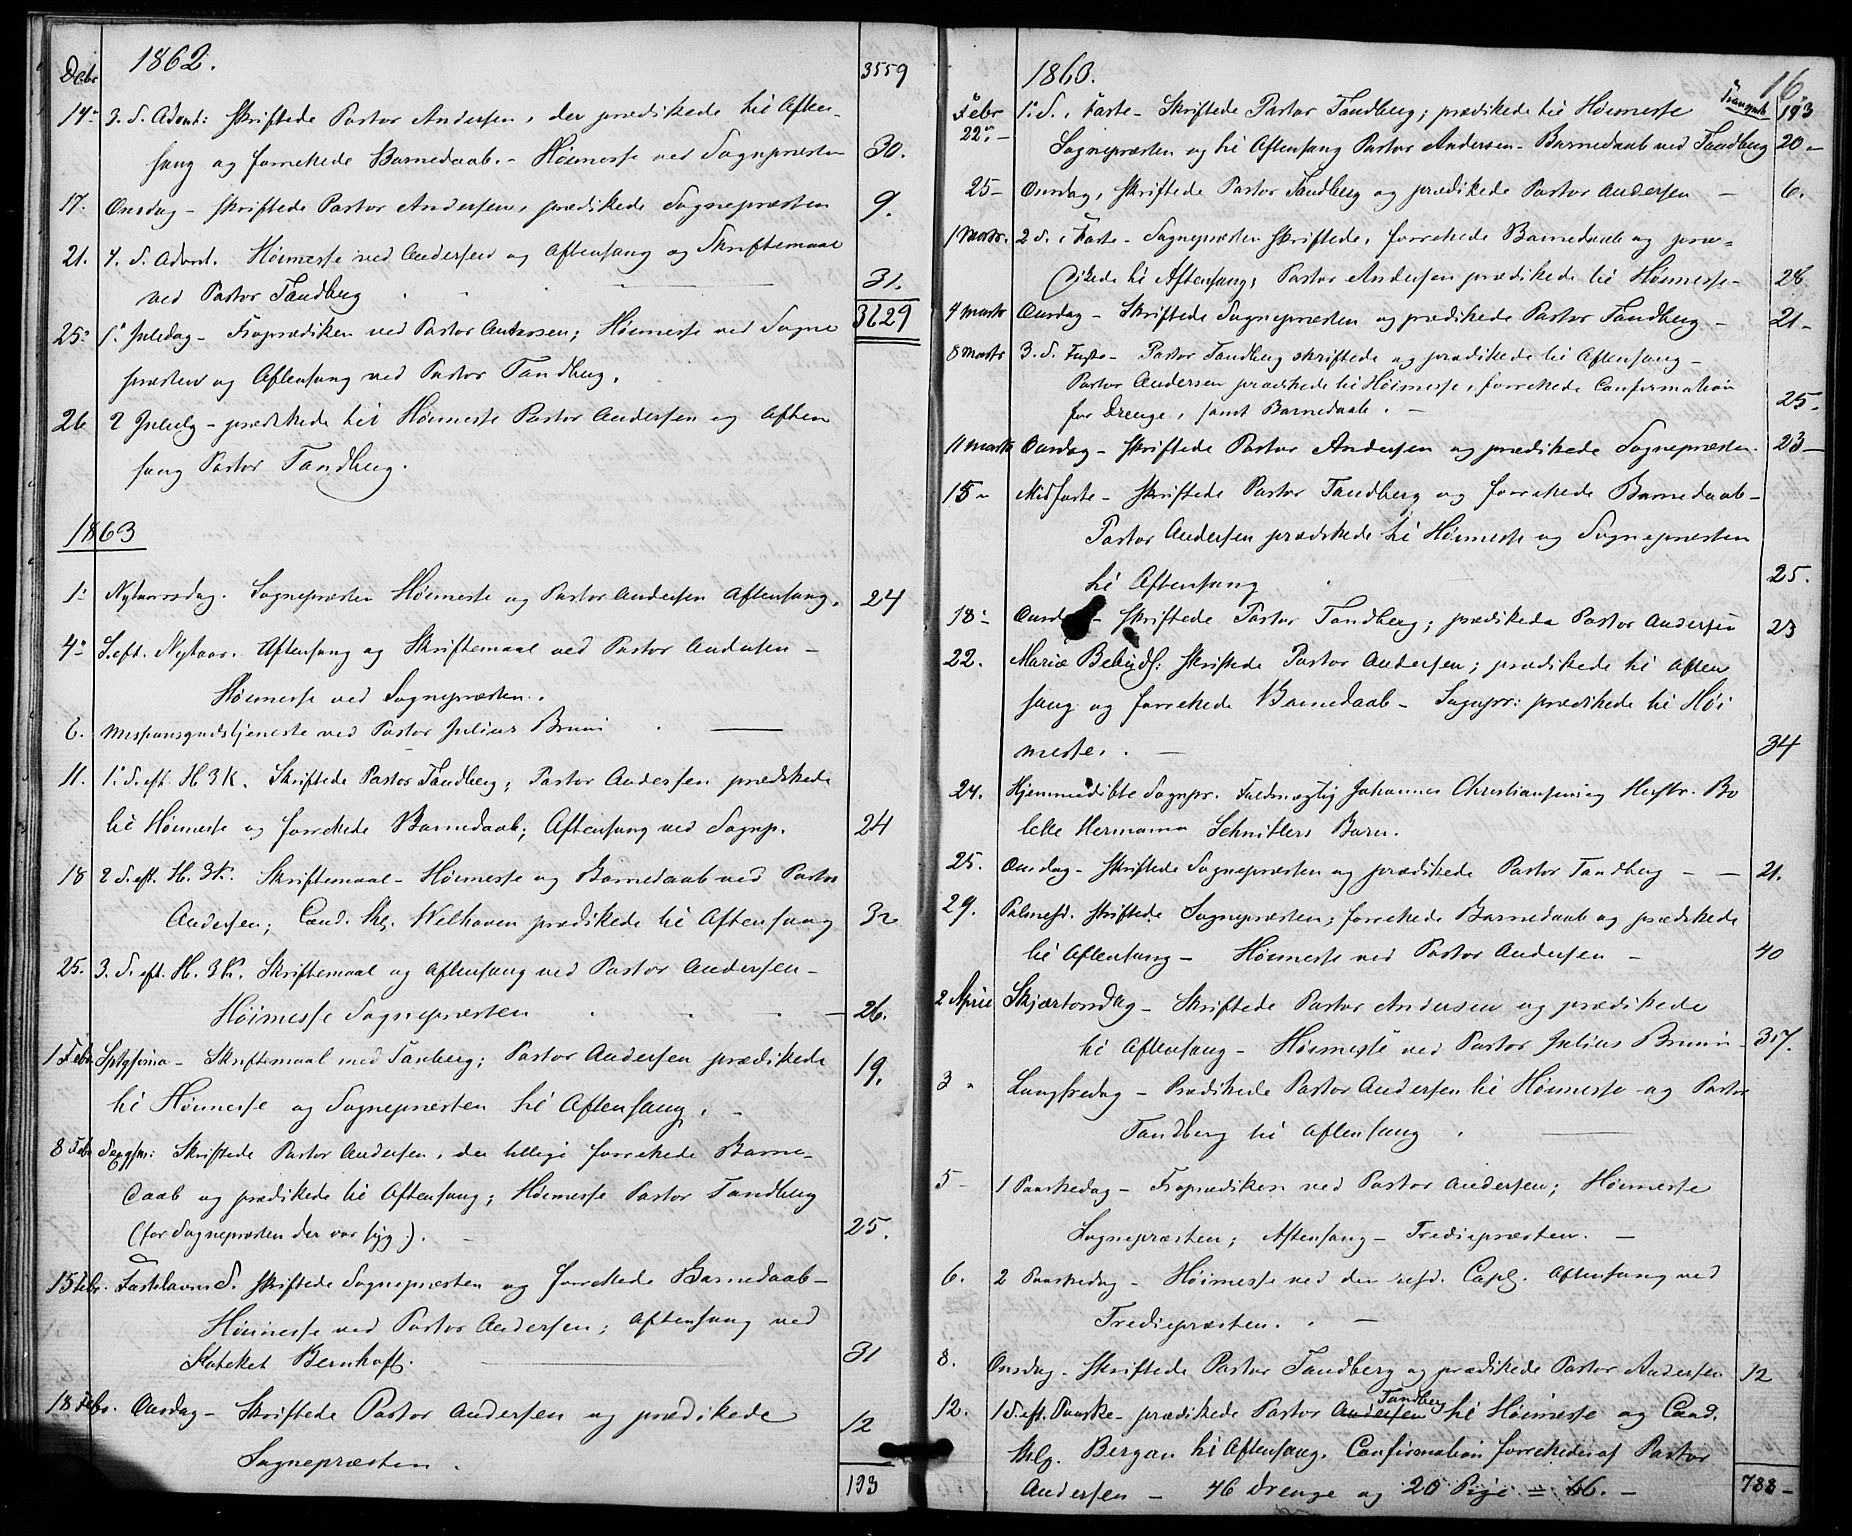 1862.
Debr 3559
14 3. S. Advent: Skriftede Pastor Andersen, der prædikede til Aften-
sang og forrettede Barnedaab. - Høimesse ved Sognepræsten 30.
17. Onsdag - Skriftede Pastor Andersen, prædikede Sognepræsten 9.
21. 4. S. Advent. Høimesse ved Andersen og Aftensang og Skriftemaal
ved Pastor Tandberg 31.
3629
25 1 Juledag - Froprædiken ved Pastor Andersen; Høimesse ved Sogne
præsten og Aftensang ved Pastor Tandberg.
26 2 Juledg - prædikede til Høimesse Pastor Andersen og Aften
sang Pastor Tandberg.
1863
1. Nytaarsdag. Sognepræsten Høimesse og Pastor Andersen Aftensang. 24
4 S. eft. Nytaar. Aftensang og Skriftemaal ved Pastor Andersen -
Høimesse ved Sognepræsten.
6. Missionsgudstjeneste ved Pastor Julius Bruun
11. 1. S. eft. H. 3 K. Skriftede Pastor Tandberg; Pastor Andersen prædikede
til Høimesse og forrettede Barnedaab; Aftensang ved Sognp. 24
18 2 S. eft. H. 3 K. Skriftemaal - Høimesse og Barnedaab ved Pastor
Andersen; Cand. thl. Welhaven prædikede til Aftensang 32
25. 3. S. eft. H. 3 K. Skriftemaal og Aftensang ved Pastor Andersen -
Høimesse Sognepræsten 26.
1 Febr. Sptgsima - Skriftemaal med Tanberg; Pastor Andersen prædikede 19.
til Høimesse og Sognepræsten til Aftensang.
8 Febr Sexgsm: Skriftede Pastor Andersen, der tillige forrettede Barne-
daab og prædikede til Aftensang; Høimesse Pastor Tandberg
(for Sognepræsten der var syg). 25.
15 Febr. Fastelavns S. Skriftede Sognepræsten og forrettede Barnedaab -
Høimesse ved Pastor Andersen; Aftensang ved
Kateket Bernhoft. 31
18 Febr. Onsdag - Skriftede Pastor Andersen og prædikede 12
Sognepræsten.
193
16
1863. Transport
Febr 1. S. i Faste - Skriftede Pastor Tandberg; prædikede til Høimesse 193
22 - Sognepræsten og til Aftensang Pastor Andersen - Barnedaab ved Tandberg 20 -
25 - Onsdag, Skriftede Pastor Tandberg og prædikede Pastor Andersen - 6.
1 Marts. 2 S. i Faste - Sognepræsten Skriftede, forrettede Barnedaab og præ-
dikede til Aftensang; Pastor Andersen prædikede til Høimesse - 26.
4 Marts Onsdag - Skriftede Sognepræsten og prædikede Pastor Tandberg - 21 -
8 Marts 3. S. Faste - Pastor Tandberg skriftede og prædikede til Aftensang -
Pastor Andersen prædikede til Høimesse, forrettede Confirmation
for Drenge, samt Barnedaab. - 25 -
11 Marts Onsdag - Skriftede Pastor Andersen og prædikede Sognepræsten. 23 -
15 - Midfaste - Skriftede Pastor Tandberg og forrettede Barnedaab -
Pastor Andersen prædikede til Høimesse og Sognepræsten
til Aftensang 25.
18 - Onsdag - Skriftede Pastor Tandberg; prædikede Pastor Andersen 23
22. Mariæ Bebuds: Skriftede Pastor Andersen; prædikede til Aften
sang og forrettede Barnedaab - Sognpr: prædikede til Høi
messe. - 34
24. Hjemmedöbte Sognpr. Fuldmægtig Johannes Christiansen og Hustr. Bo
lette Hermana Schnitlers Barn.
25. Onsdag - Skriftede Sognepræsten og prædikede Pastor Tandberg - - 21.
29. Palmesd. Skriftede Sognepræsten, forrettede Barnedaab og prædikede
til Aftensang - Høimesse ved Pastor Andersen - 40
2 April Skjærtorsdag - Skriftede Pastor Andersen og prædikede
til Aftensang - Høimesse ved Pastor Julius Bruun - 317.
3 " Langfredag - Prædikede Pastor Andersen til Høimesse og Pastor
Tandberg til Aftensang.
5 - 1 Paaskedag - Froprædiken ved Pastor Andersen; Høimesse
Sognepræsten; Aftensang - Tredieprästen. -
6. 2 Paaskedag - Høimesse ved den resd. Capl. Aftensang ved
Tredieprästen. -
8. Onsdag. Skriftede Pastor Tandberg og prædikede Pastor Andersen 12
12. 1 S. eft. Paaske - prædikede Pastor Andersen Tandberg til Høimesse og Cand.
thlg. Bergan til Aftensang. Confirmation forrettedes af Pastor
Andersen - 46 Drenge og 20 Pige = 66. - 788 -